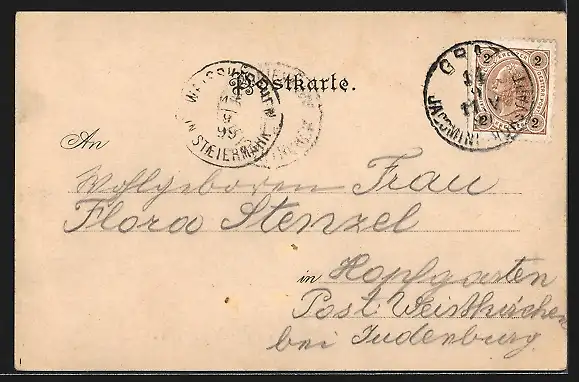 Postkarte.
GRAZ
JACOMINI
2 2
2 2
IN STEIERMARK
9
99
An
Wohlgeboren Frau
Flora Stenzel
in Hopfgarten
Post Weistkirchen
bei Judenburg